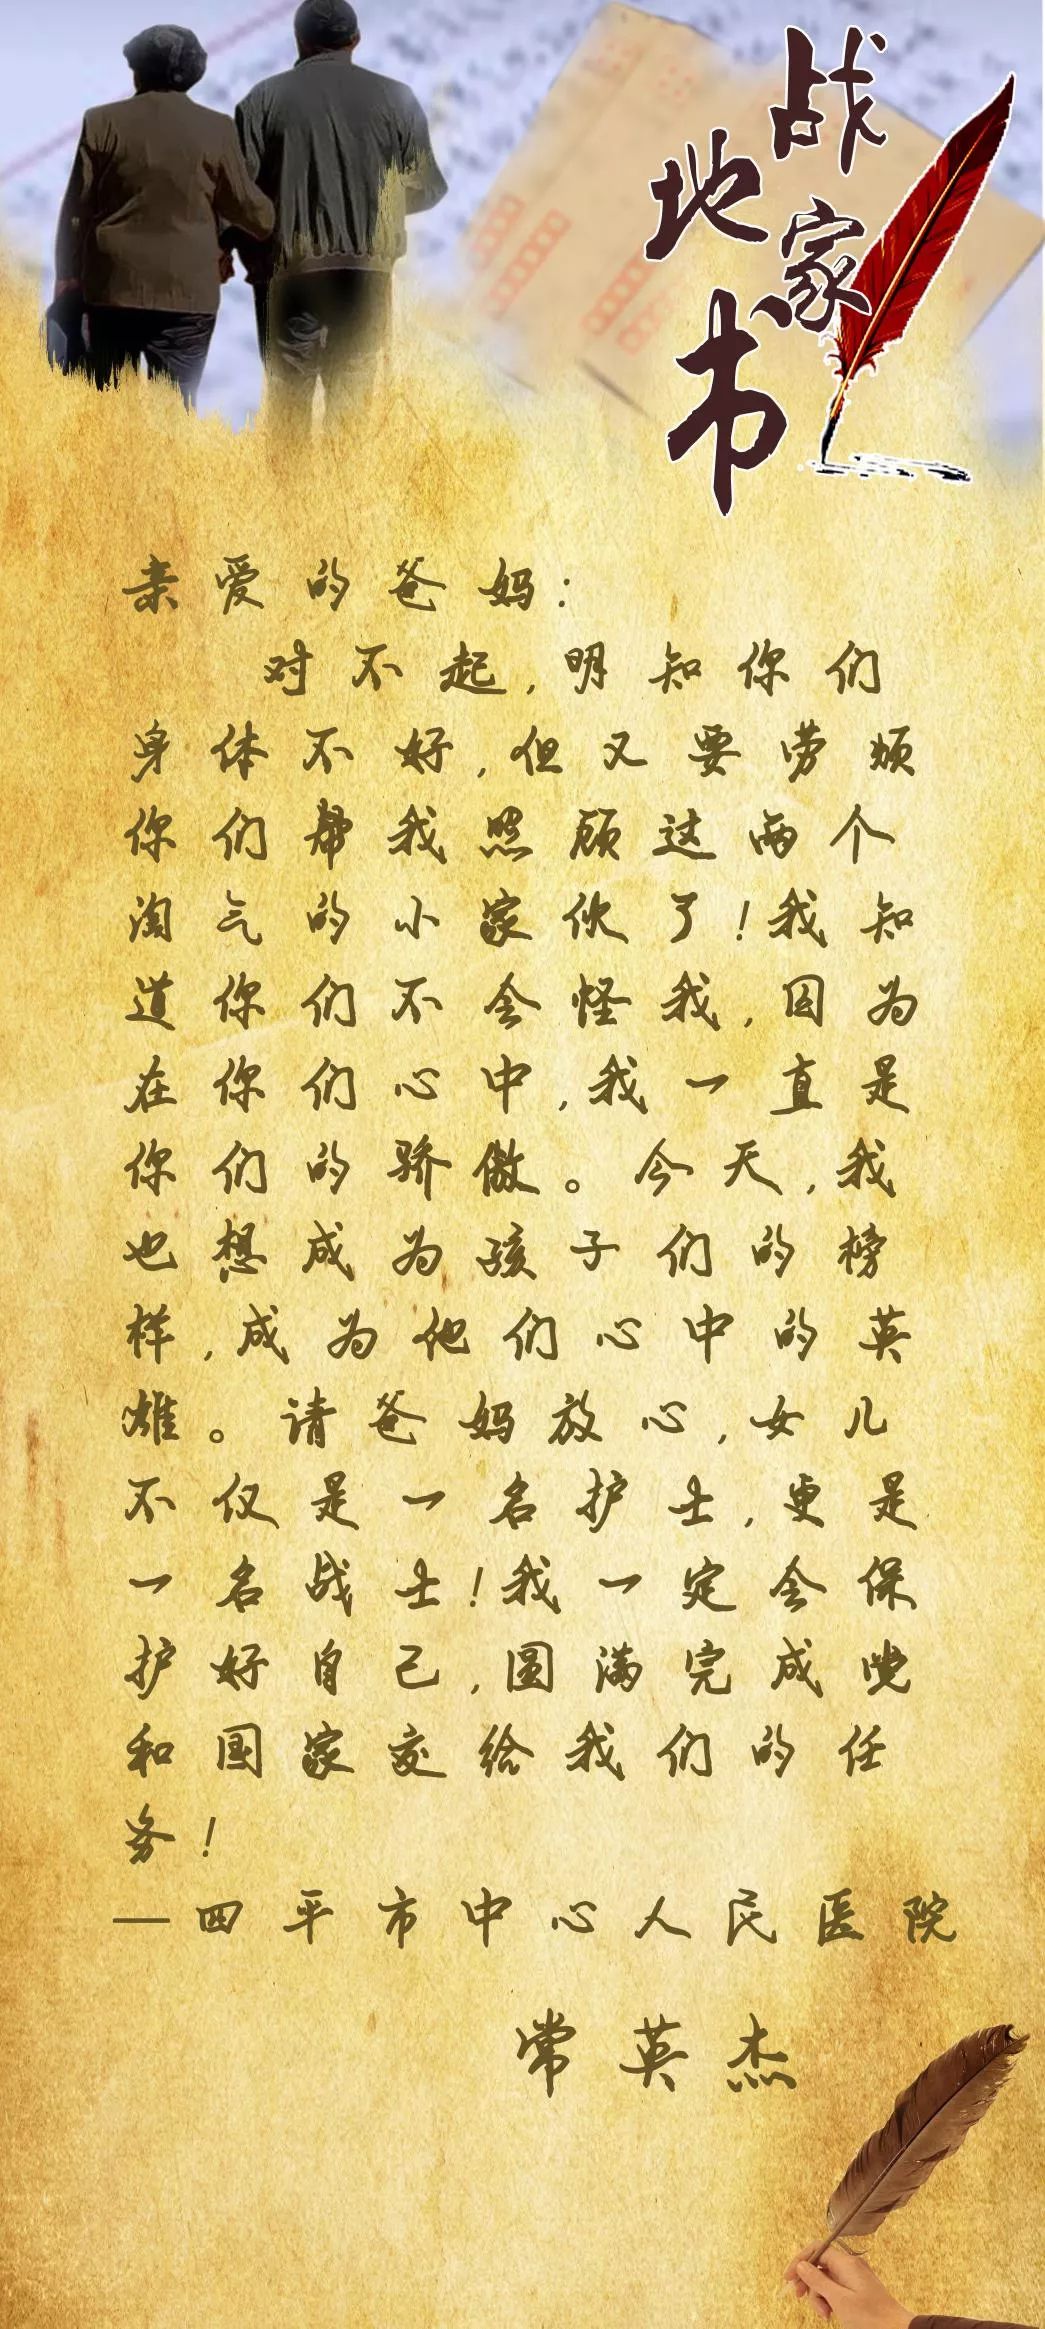 战地家书
亲爱的爸妈：
对不起,明知你们
身体不好,但又要劳烦
你们帮我照顾这两个
淘气的小家伙了!我知
道你们不会怪我,因为
在你们心中,我一直是
你们的骄傲。今天,我
也想成为孩子们的榜
样,成为他们心中的英
雄。请爸妈放心,女儿
不仅是一名护士,更是
一名战士!我一定会保
护好自己,圆满完成党
和国家交给我们的任
务!
—四平市中心人民医院
常英杰